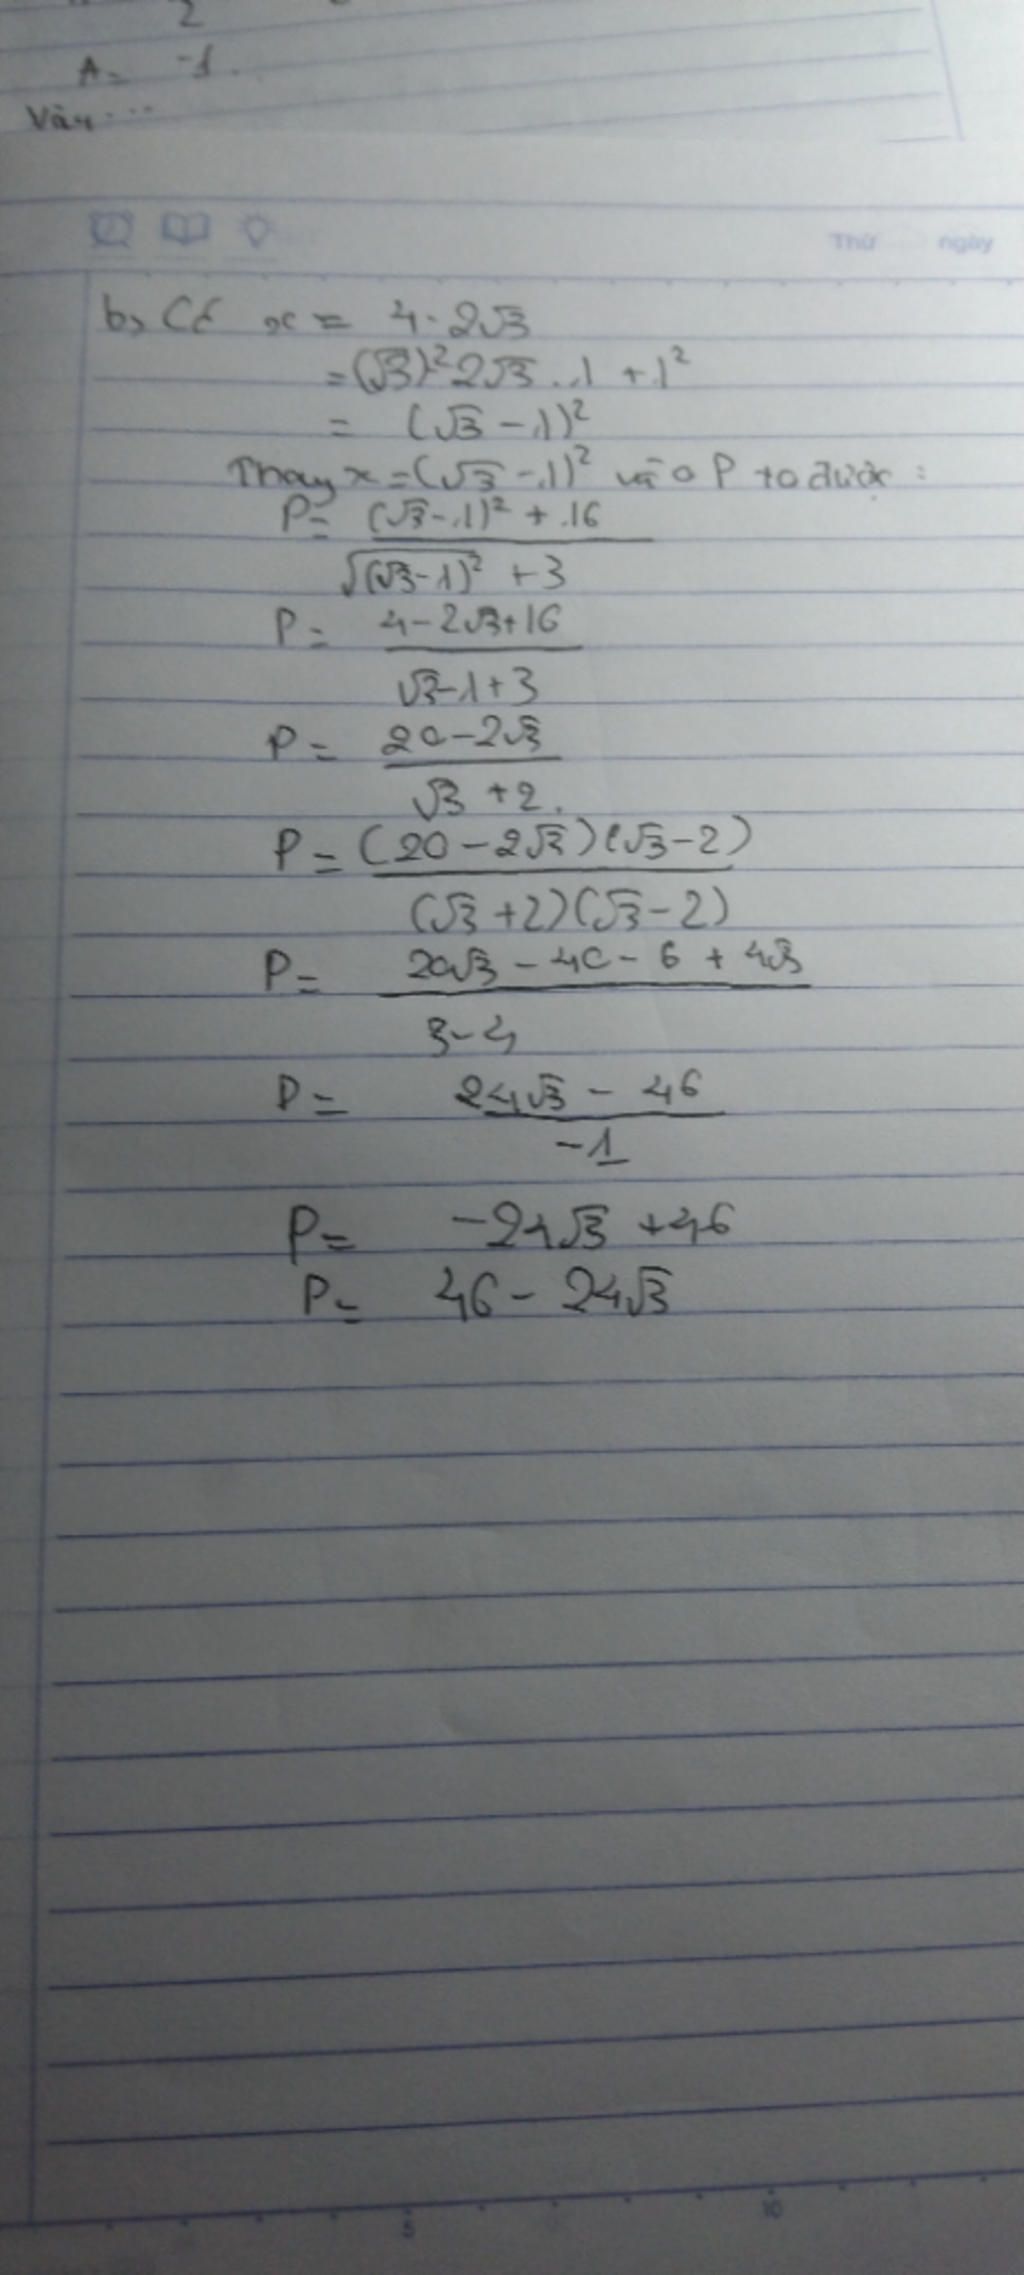 2
A = -1.
Vậy...
Thứ ngày
b, Có x = 4 - 2√3
= (√3)² 2√3 . 1 + 1²
= (√3 - 1)²
Thay x = (√3 - 1)² vào P ta được :
P = ((√3 - 1)² + 16) / (√(√3 - 1)² + 3)
P = (4 - 2√3 + 16) / (√3 - 1 + 3)
P = (20 - 2√3) / (√3 + 2)
P = (20 - 2√3)(√3 - 2) / (√3 + 2)(√3 - 2)
P = (20√3 - 40 - 6 + 4√3) / (3 - 4)
P = (24√3 - 46) / -1
P = -24√3 + 46
P = 46 - 24√3
5 10